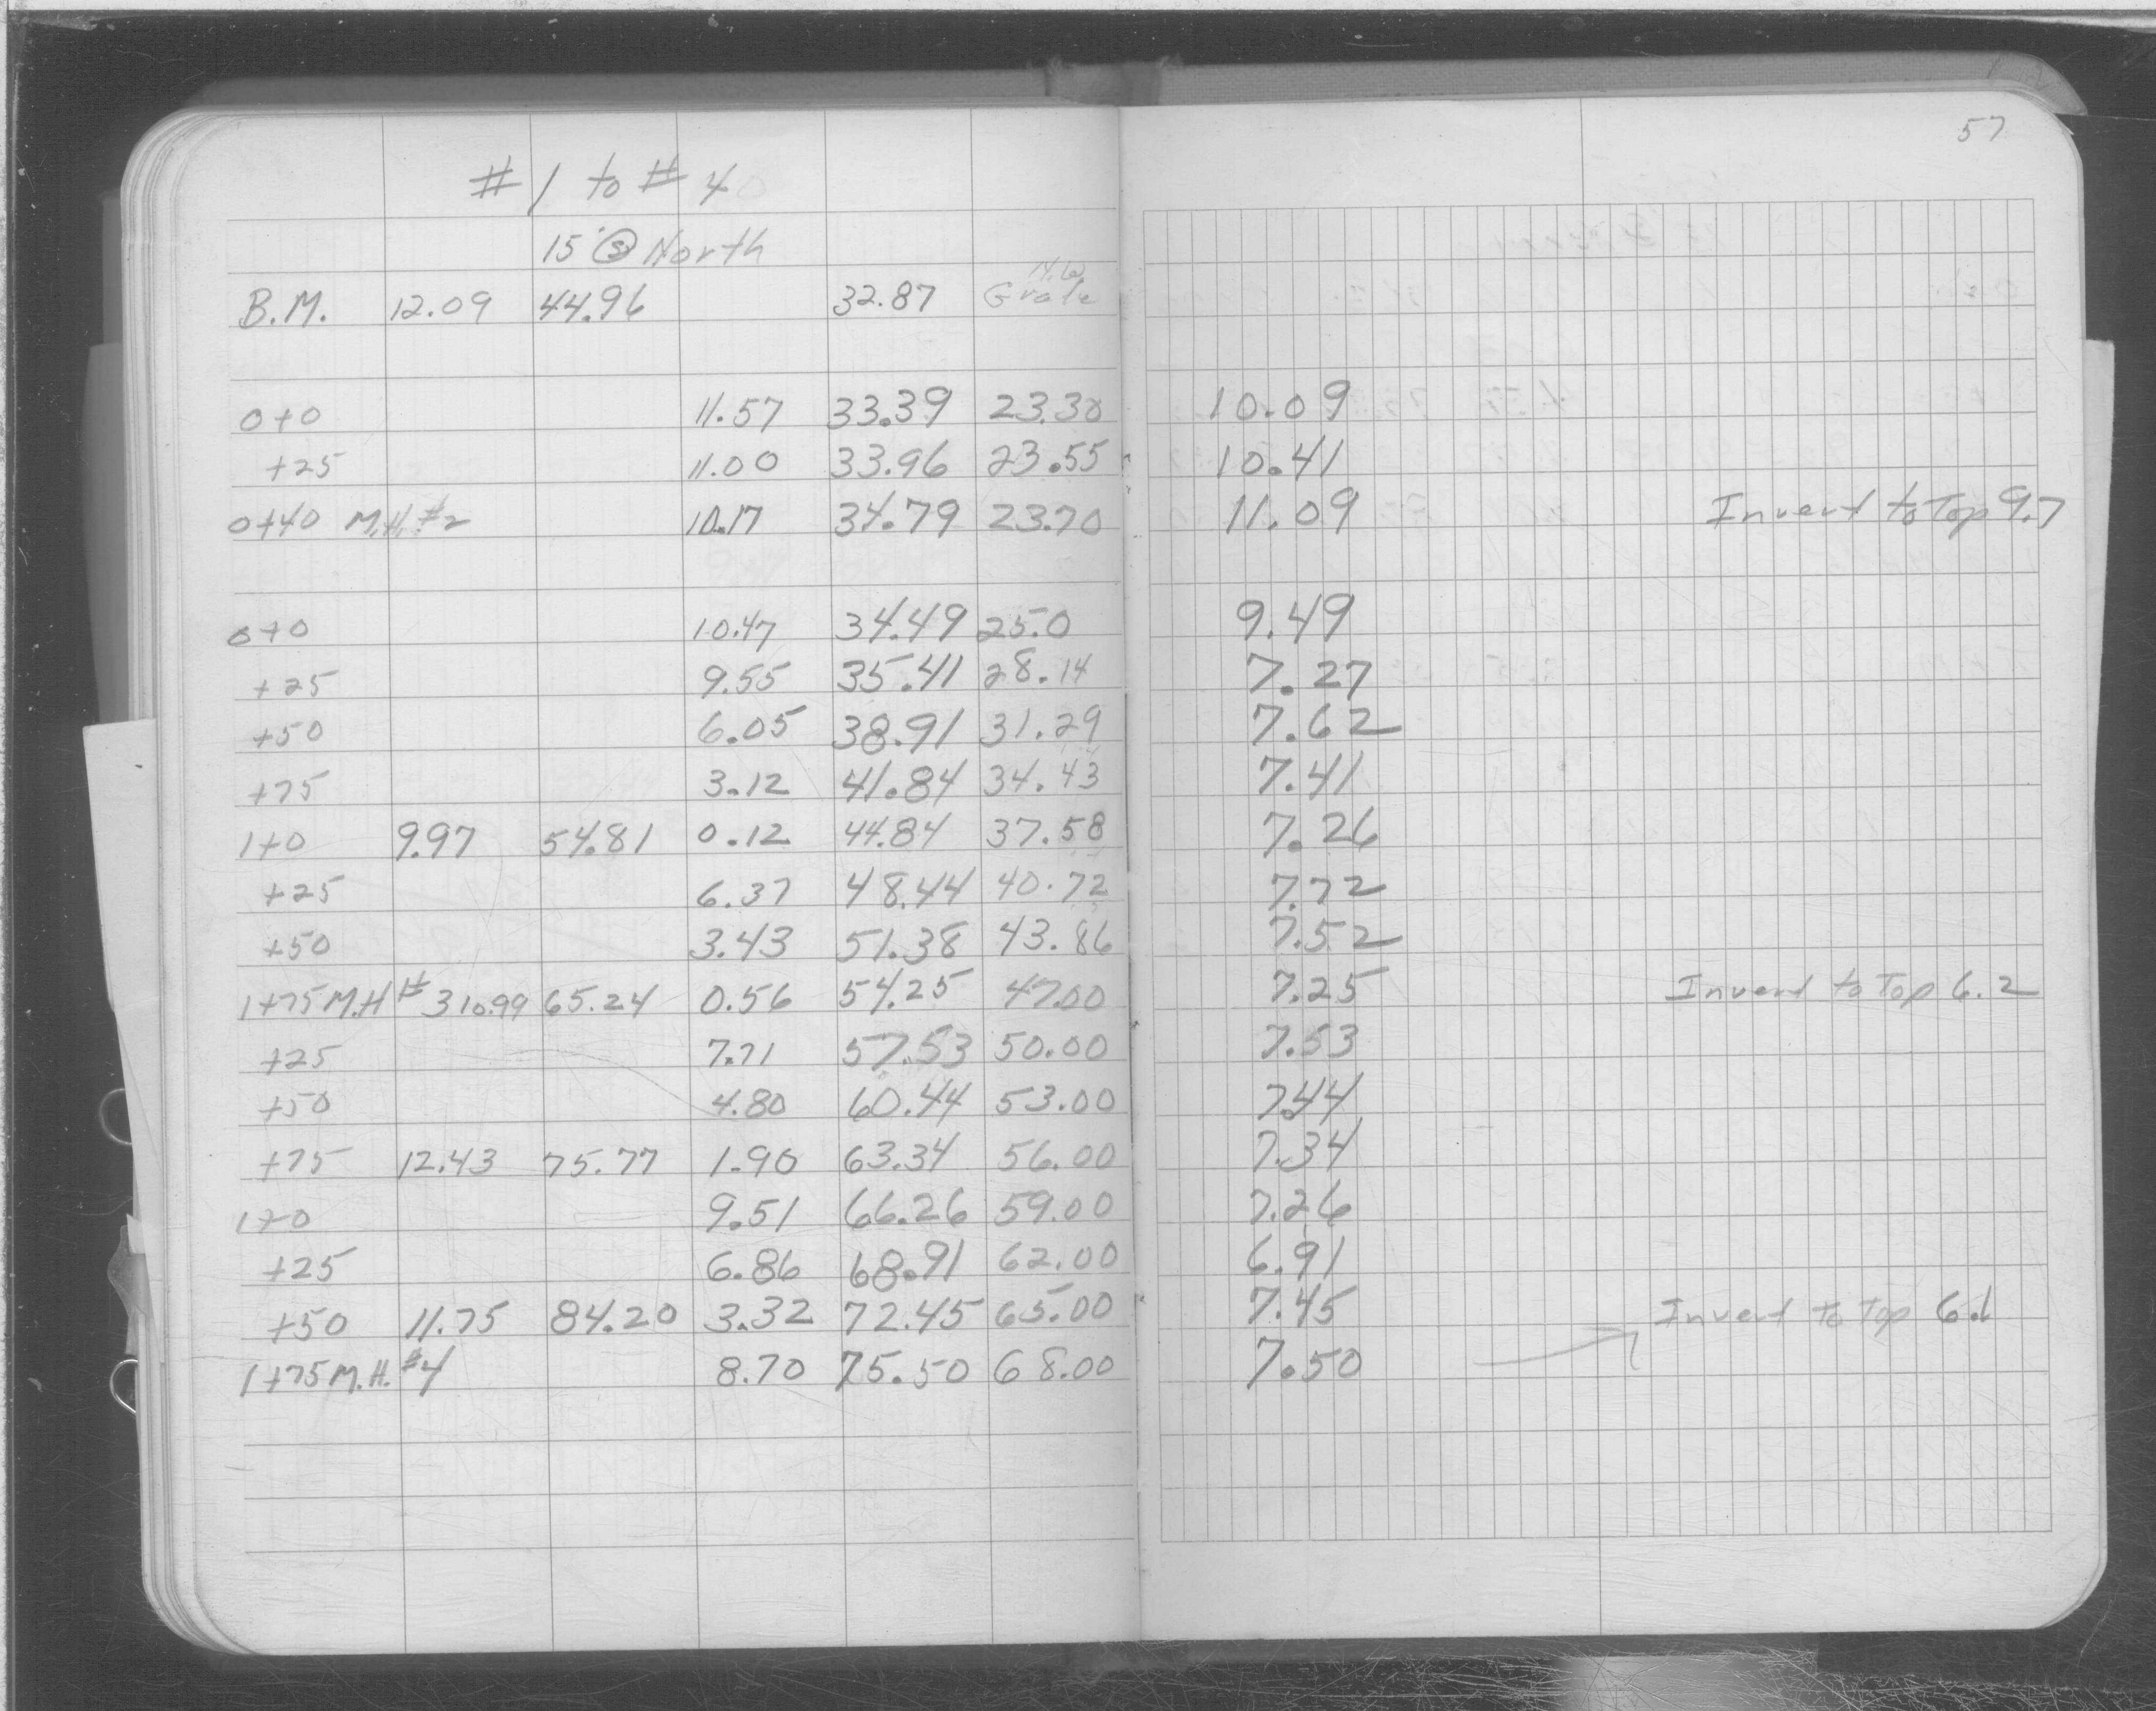 57
#1 to # 4
15' Ⓢ North
B.M. 12.09 44.96 32.87 Grate
0+0 11.57 33.39 23.30 10.09
+25 11.00 33.96 23.55 10.41
0+40 M.H. #2 10.17 34.79 23.70 11.09 Invert to Top 9.7
0+0 10.47 34.49 25.0 9.49
+25 9.55 35.41 28.14 7.27
+50 6.05 38.91 31.29 7.62
+75 3.12 41.84 34.43 7.41
1+0 9.97 54.81 0.12 44.84 37.58 7.26
+25 6.37 48.44 40.72 7.72
+50 3.43 51.38 43.86 7.52
1+75 M.H # 3 10.99 65.24 0.56 54.25 47.00 7.25 Invert to Top 6.2
+25 7.71 57.53 50.00 7.53
+50 4.80 60.44 53.00 7.44
+75 12.43 75.77 1.90 63.34 56.00 7.34
1+0 9.51 66.26 59.00 7.26
+25 6.86 68.91 62.00 6.91
+50 11.75 84.20 3.32 72.45 65.00 7.45 Invert to Top 6.1
1+75 M.H. #4 8.70 75.50 68.00 7.50